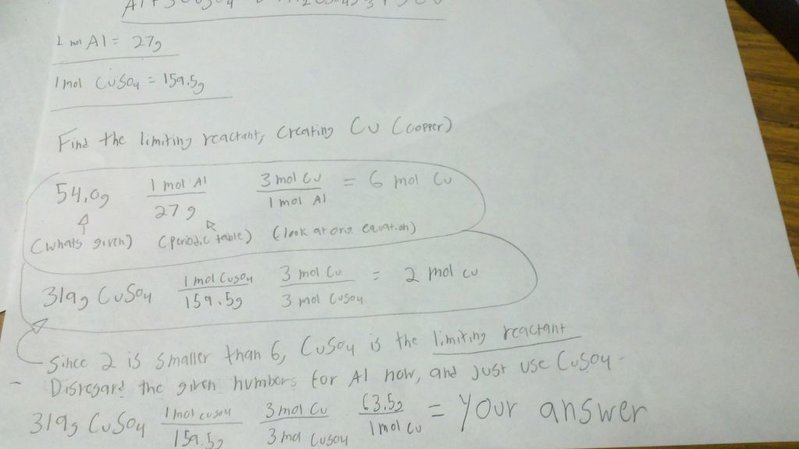 1 mol Al = 27g
1 mol CuSO4 = 159.5g
Find the limiting reactant, creating Cu (copper)
54.0g 1 mol Al / 27g 3 mol Cu / 1 mol Al = 6 mol Cu
(whats given) (periodic table) (look at orig equation)
319g CuSO4 1 mol CuSO4 / 159.5g 3 mol Cu / 3 mol CuSO4 = 2 mol Cu
Since 2 is smaller than 6, CuSO4 is the limiting reactant
- Disregard the given numbers for Al now, and just use CuSO4.
319g CuSO4 1 mol CuSO4 / 159.5g 3 mol Cu / 3 mol CuSO4 63.5g / 1 mol Cu = Your answer